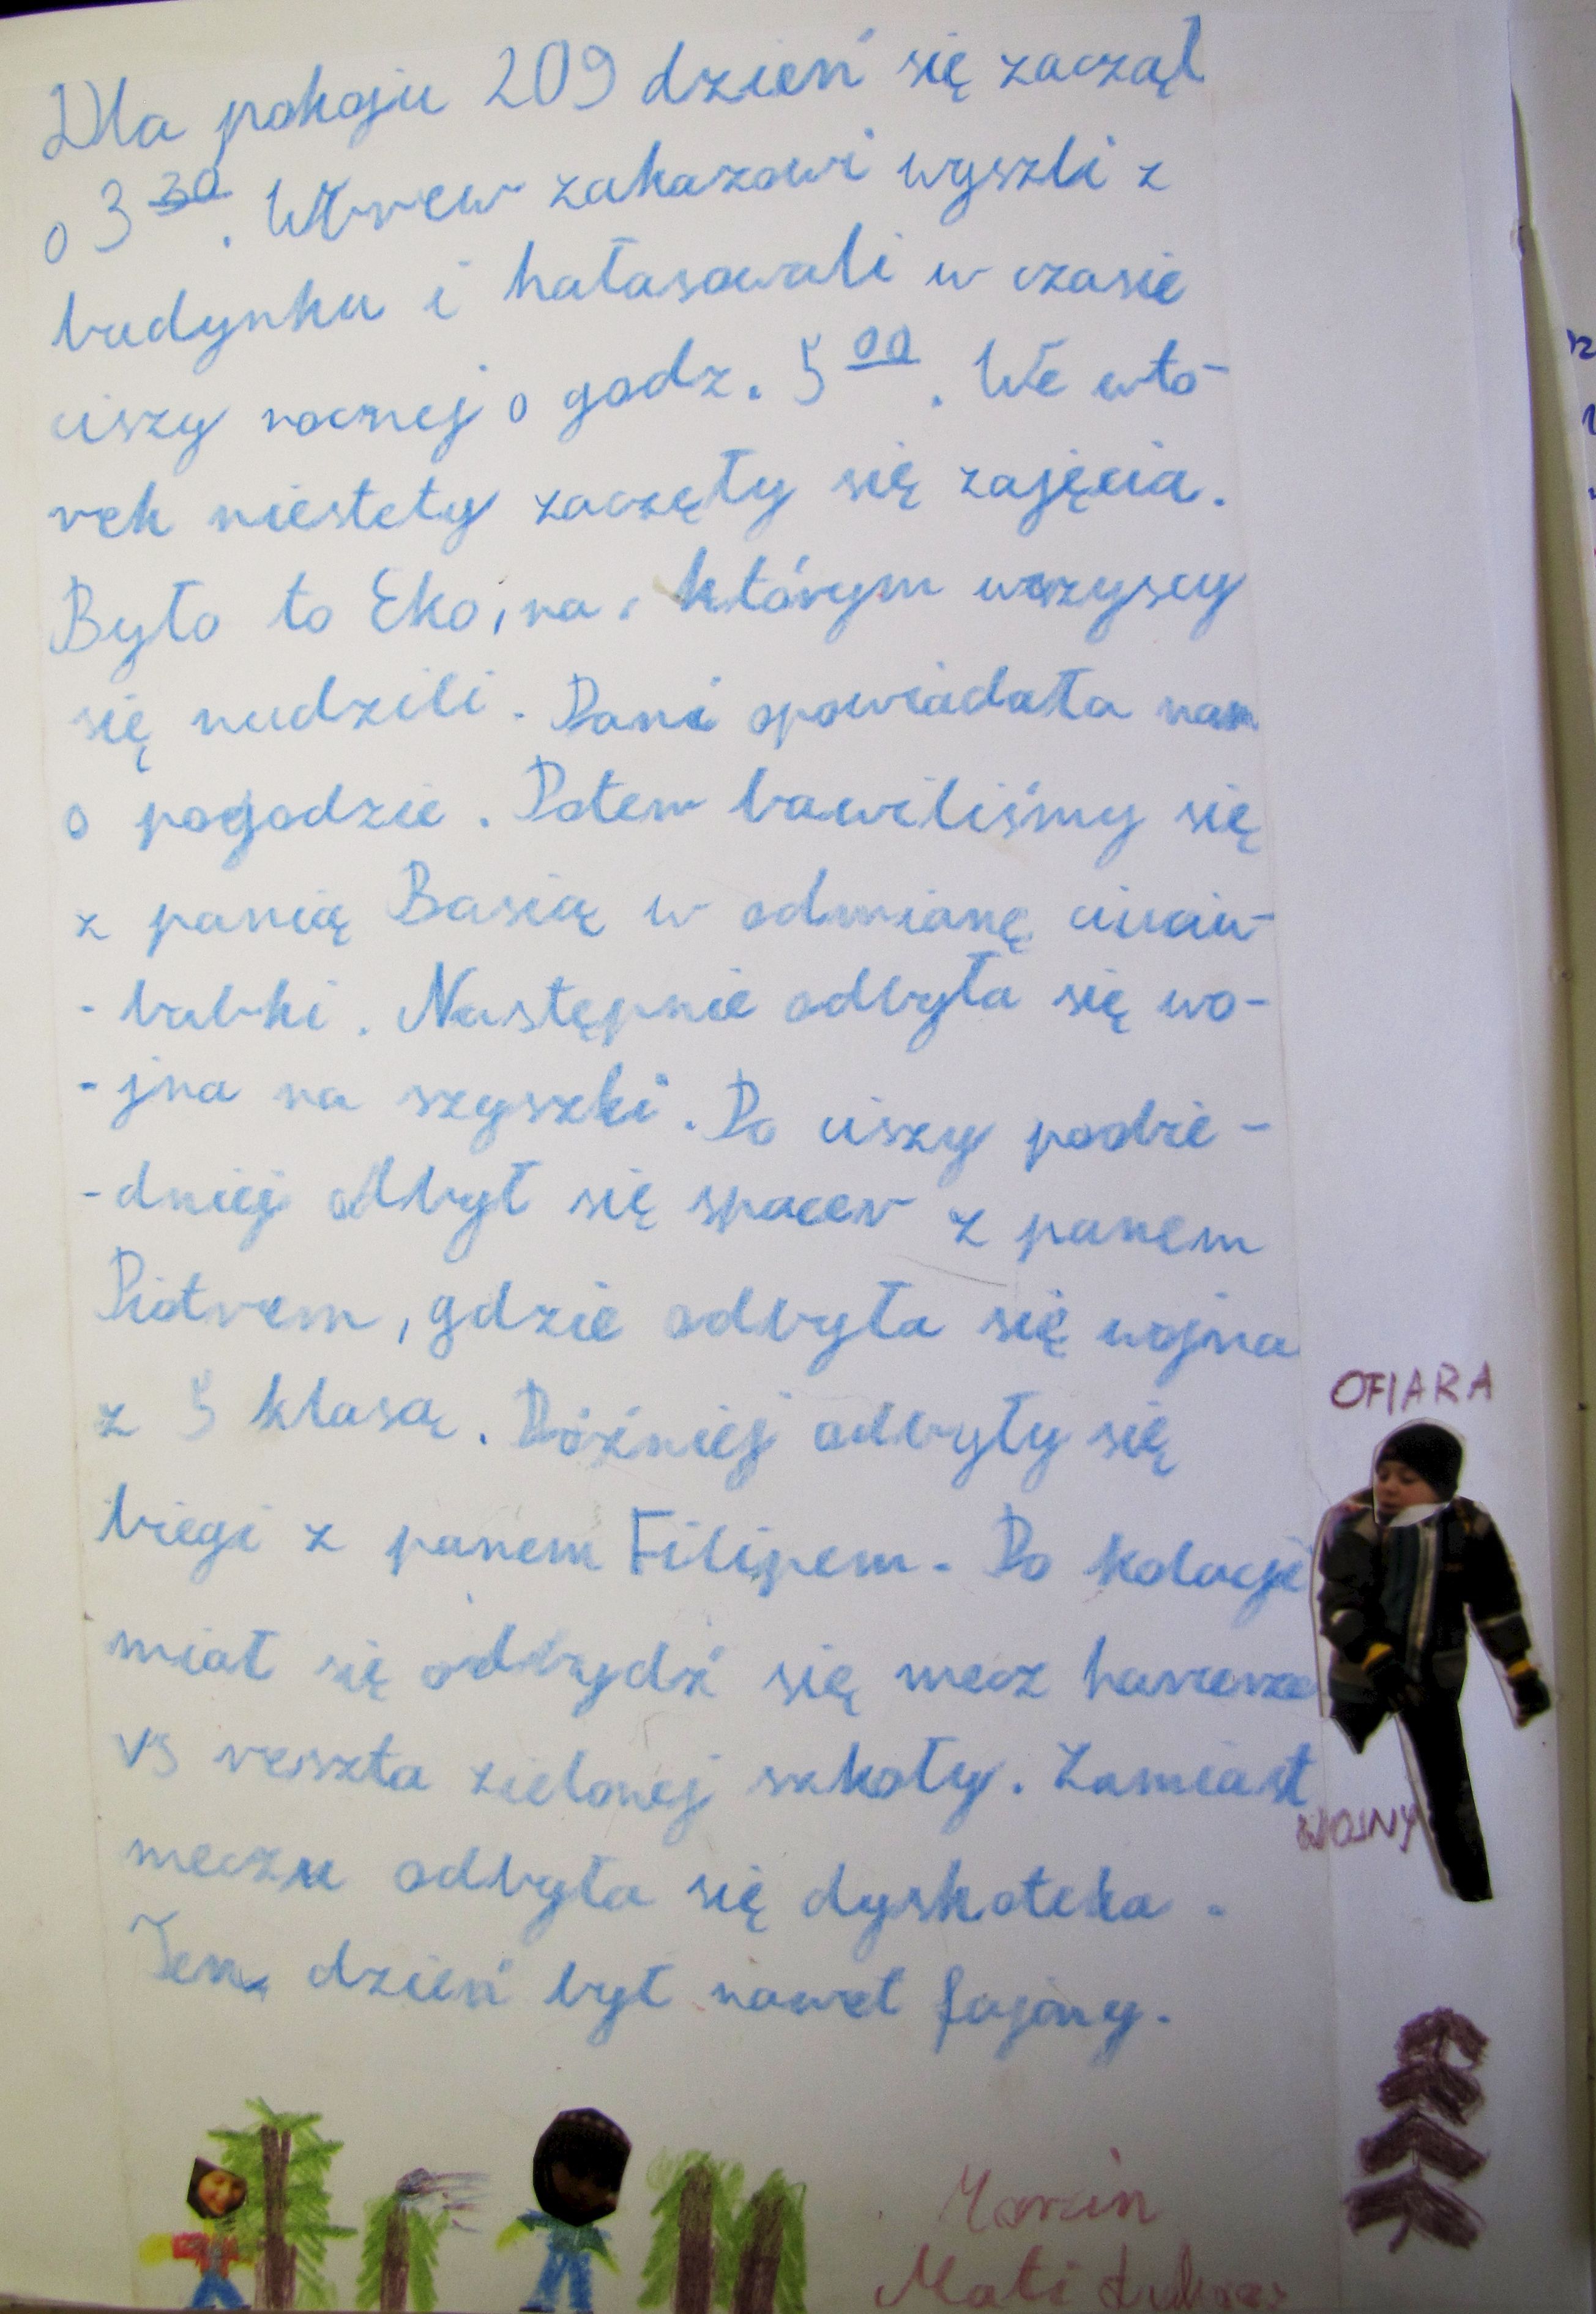 Dla pokoju 209 dzień się zaczął
o 3 30. Wbrew zakazowi wyszli z
budynku i hałasowali w czasie
ciszy nocnej o godz. 5 00. We wto-
rek niestety zaczęły się zajęcia.
Było to Eko, na, którym wszyscy
się nudzili. Pani opowiadała nam
o pogodzie. Potem bawiliśmy się
z panią Basią w odmianę ciuciu-
-babki. Następnie odbyła się wo-
-jna na szyszki. Po ciszy poobie-
-dniej odbył się spacer z panem
Piotrem, gdzie odbyła się wojna
z 5 klasą. Później odbyły się
biegi z panem Filipem. Po kolacji
miał się odbydź się mecz harcerze
vs reszta zielonej szkoły. Zamiast
meczu odbyła się dyskoteka.
Ten dzień był nawet fajny.
OFIARA
WOJNY
Marcin
Mati Łukasz